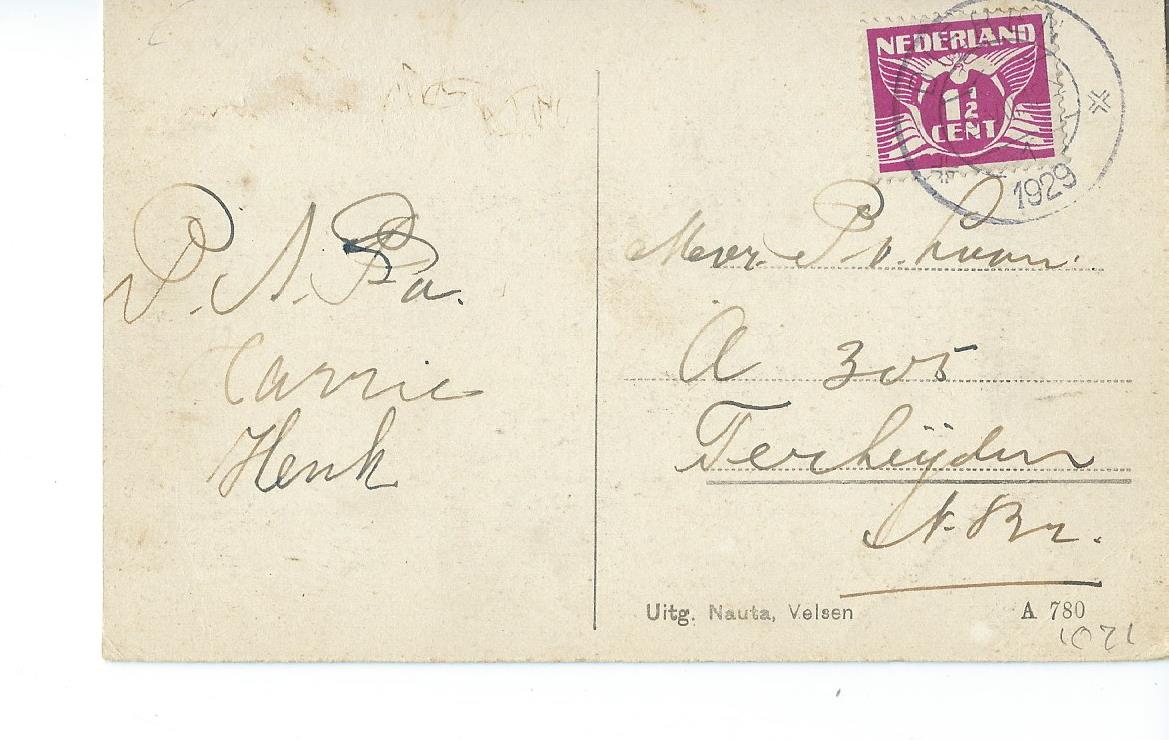 NEDERLAND
1 1/2
CENT
1929
P. A. Pa.
Carrie
Henk
Mevr. P. v. Loon.
A 305
Terheijden
N-Br.
Uitg. Nauta, Velsen
A 780